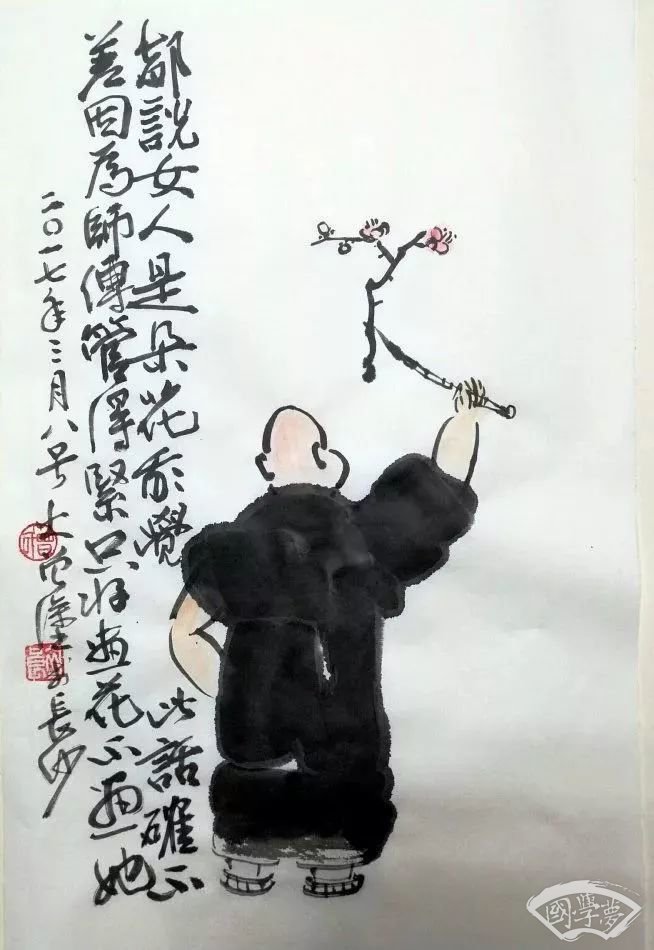 都說女人是朵花我覺
此話確不
差因為師傅管得緊只好畫花不畫她
二〇一七年三月八号大長沙
國學夢